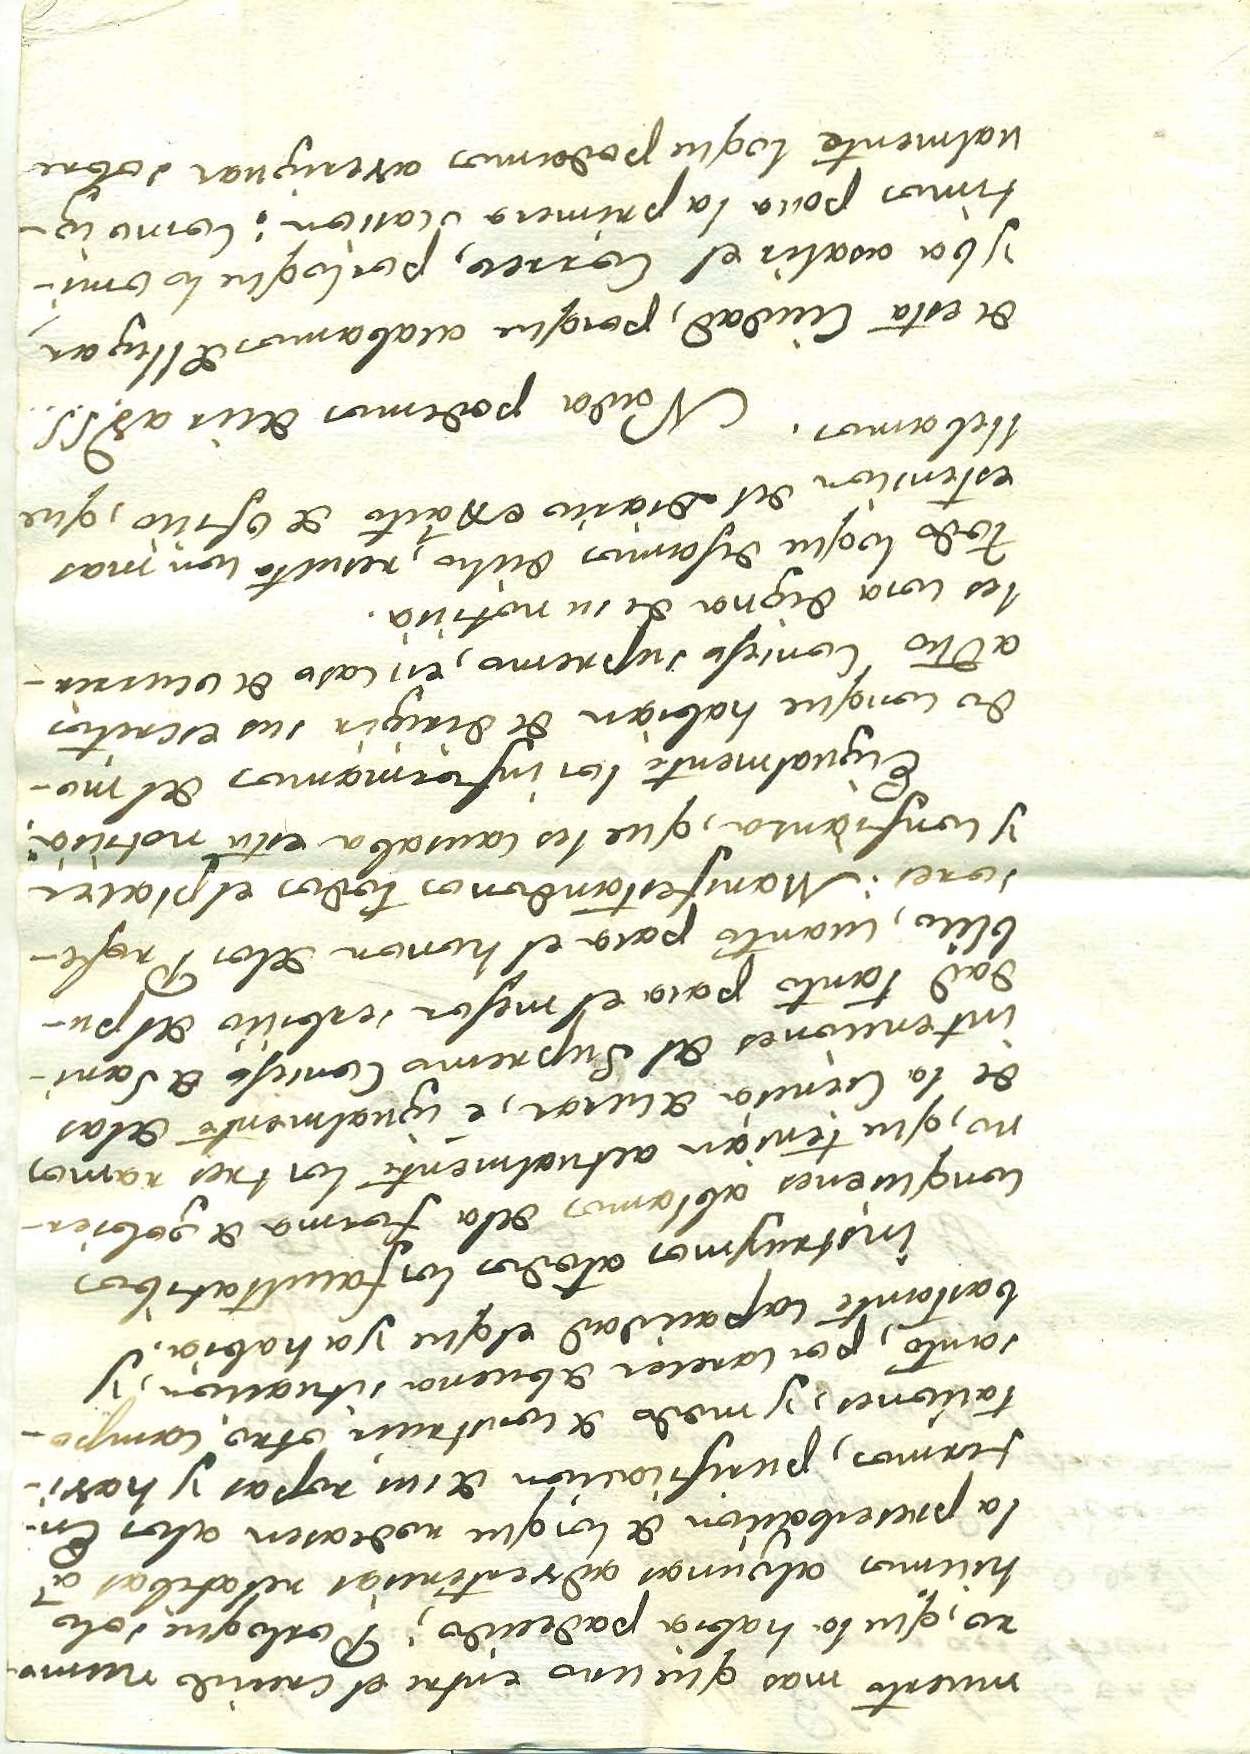 muerto mas que uno entre el crecido nume-
ro, qe. lo habia padecido; Por loque solo
hicimos algunas advertencias relatibas à
la preserbacion de losque rodeasen alos En-
fermos, purificacion de sus ropas y havi-
taciones, y modo de construir otro campo-
santo, por carecer de buena situacion, y
bastante capacidad elque ya habia.
Instruymos atodos los facultatibos
conquienes ablamos, dela forma de govier-
no, que tenian actualmente los tres ramos
de la Ciencia de curar, e igualmente delas
intenciones del Supremo Consejo de Sani-
dad tanto para el mejor serbicio del pu-
blico, cuanto para el honor delos Profe-
sores: Manifestandonos todos el placer
y confianza, que les causaba esta noticia;
E igualmente los informamos del mo-
do conque habian de dirigir sus escritos
adho Consejo supremo, en caso de ocurrir-
les cosa digna de su noticia.
Todo loque dejamos dicho, resulta con mas
estension del Diario exacto de oficio, que
llebamos. Nada podemos decir a V.SS.
de esta Ciudad, porque acabamos de llegar,
y ba asalir el Correo, porloque lo omi-
timos para la primera ocasion: Como ig-
ualmente loque podamos averiguar sobre